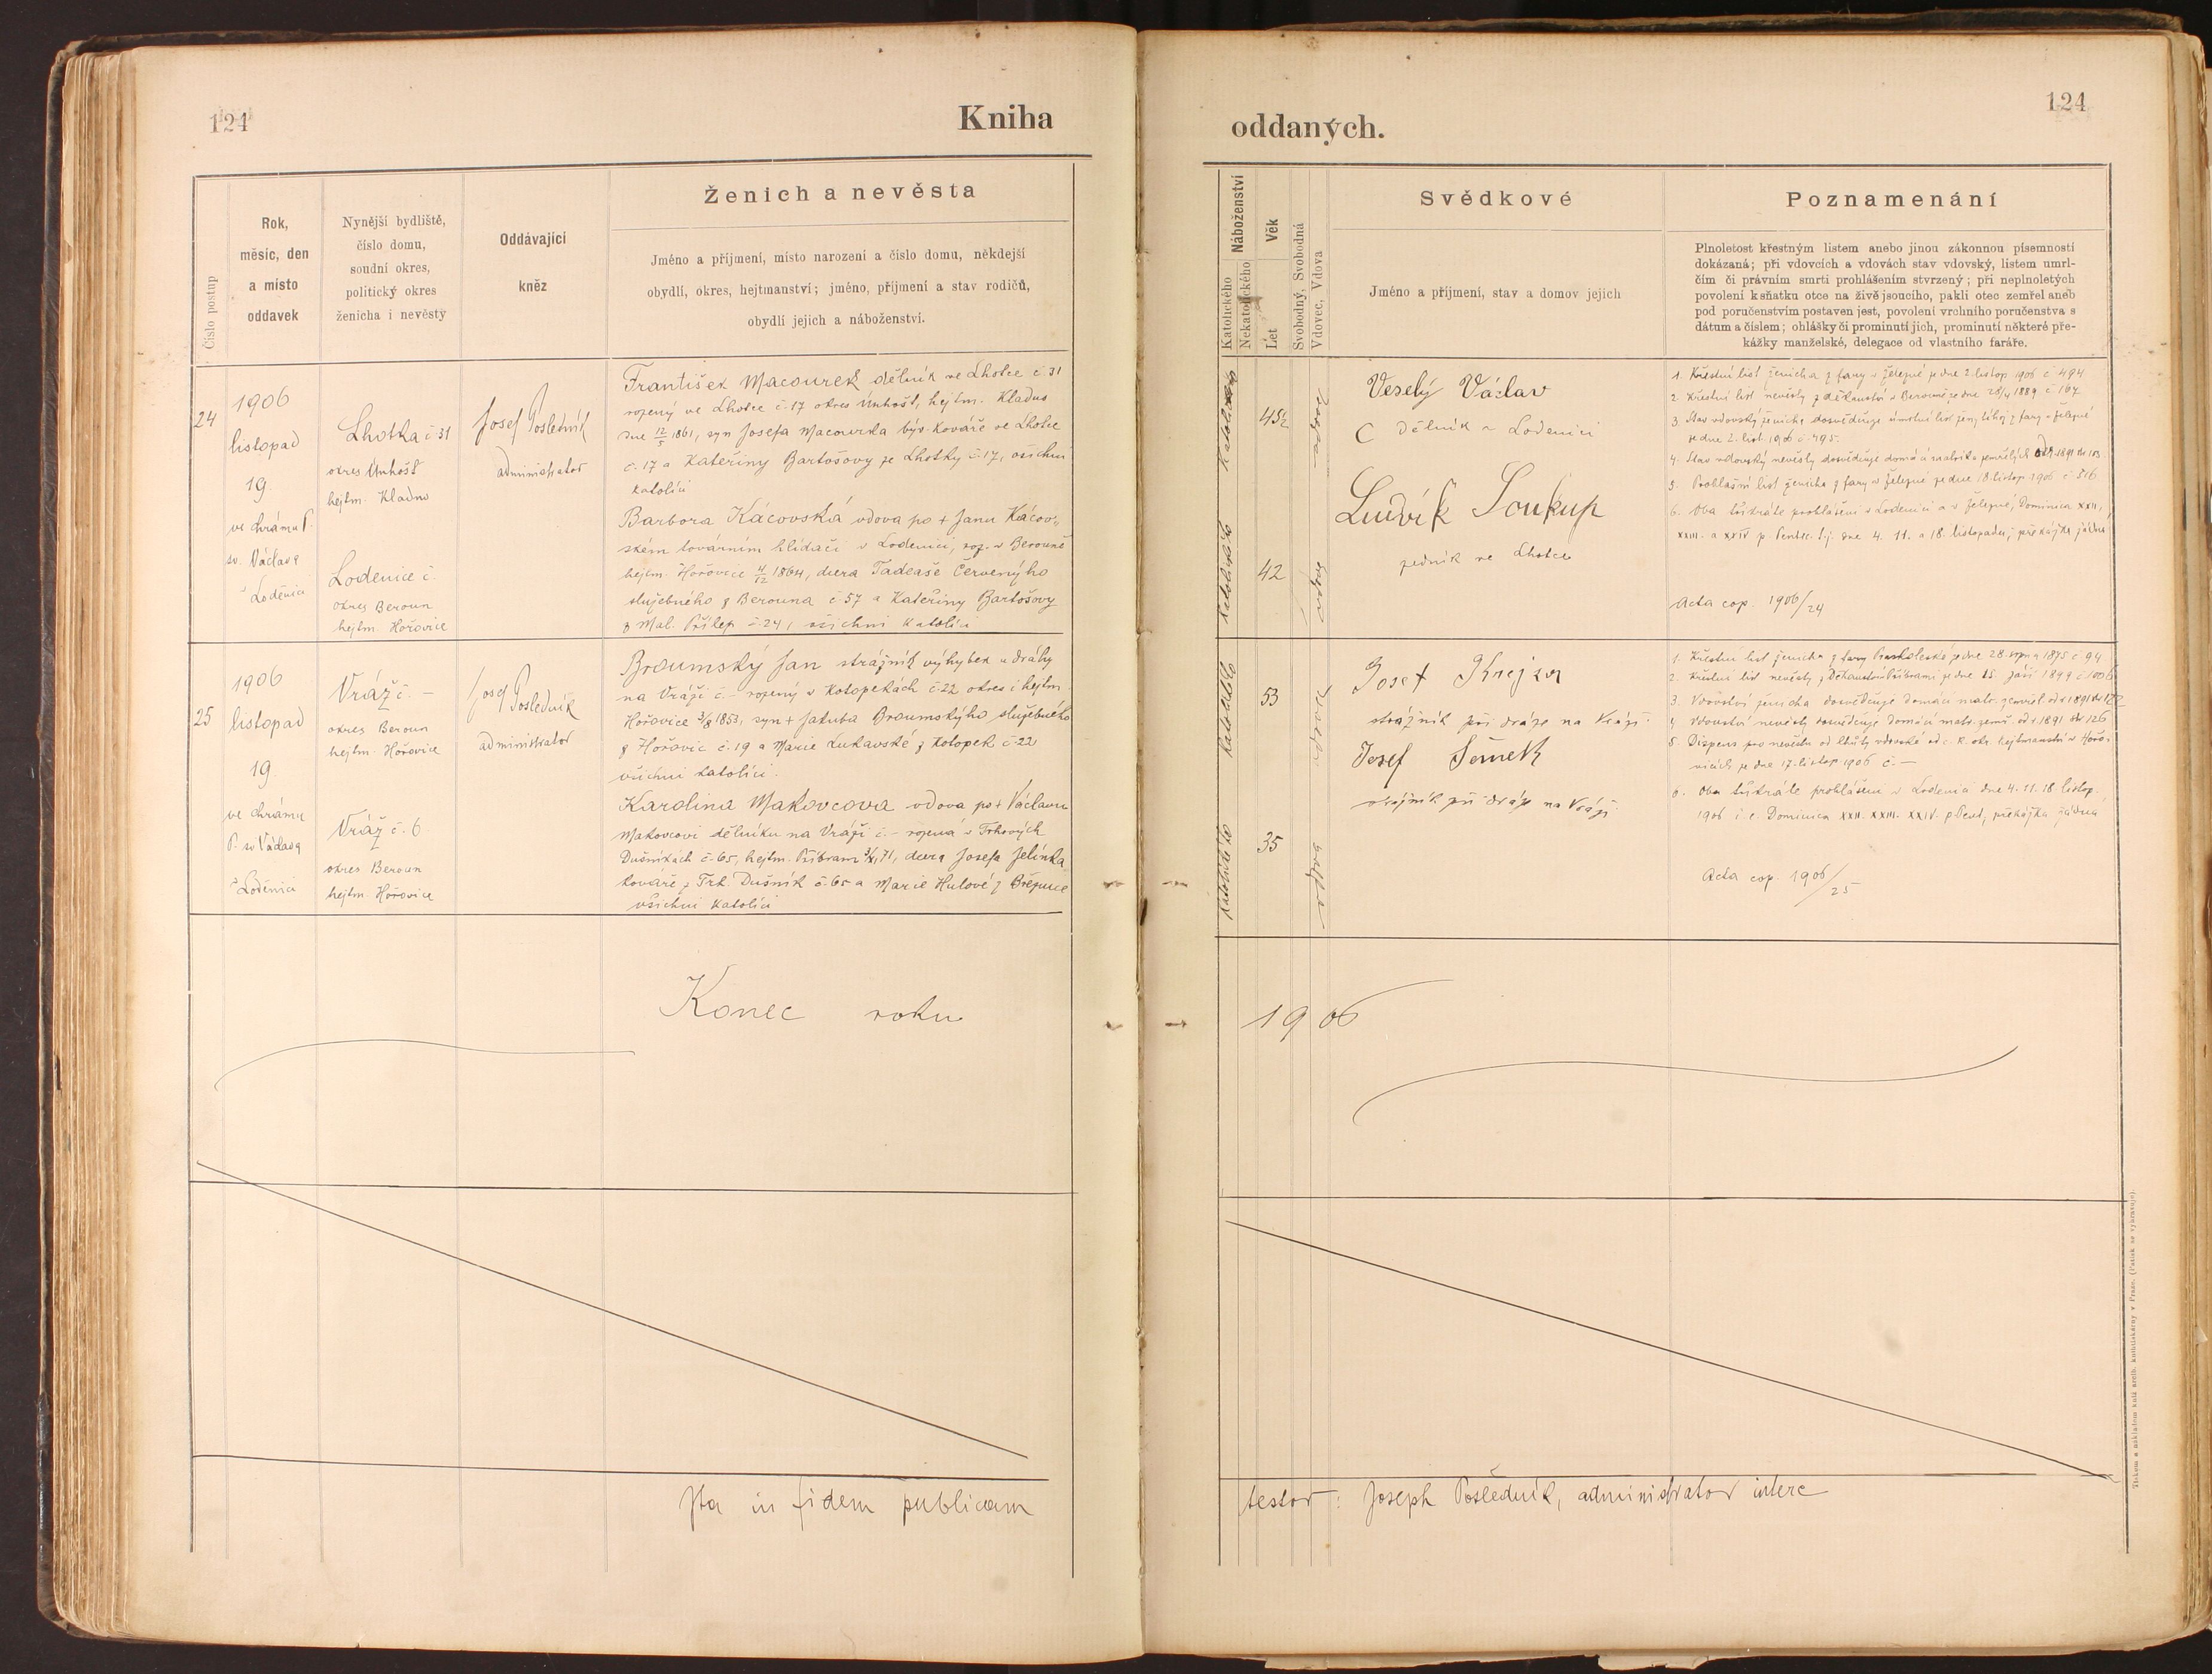 124
Kniha
Číslo postup
Rok,
měsíc, den
a místo
oddavek
Nynější bydliště,
číslo domu,
soudní okres,
politický okres
ženicha i nevěsty
Oddávající
kněz
Ženich a nevěsta
Jméno a příjmení, místo narození a číslo domu, někdejší
obydlí, okres, hejtmanství; jméno, příjmení a stav rodičů,
obydlí jejich a náboženství.
24
1906
listopad
19.
ve chrámu P.
sv. Václava
v Loděnici
Lhotka č 31
okres Unhošť
hejtm. Kladno
Lodenice č.
okres Beroun
hejtm. Hořovice
Josef Posledník
administrator
František Macourek dělník ve Lhotce č 31
rozený ve Lhotce č. 17 okres Unhošť, hejtm. Kladno
dne 12/5 1861, syn Josefa Macourka býv. kováře ve Lhotce
č. 17 a Kateřiny Bartošovy ze Lhotky č. 17, všichni
katolíci
Barbora Kácovská vdova po + Janu Kácov„
ském továrním hlídači v Lodenici, roz. v Berouně
hejtm. Hořovice 4/12 1864, dcera Tadeáše Červenýho
služebného z Berouna č 57 a Kateřiny Bartošovy
z Mal. Přílep č. 24, všichni katolíci
25
1906
listopad
19.
ve chrámu
P. sv Václava
v Loděnici
Vráž č. –
okres Beroun
hejtm. Hořovice
Vráž č. 6
okres Beroun
hejtm. Hořovice
Josef Posledník
administrator
Broumský Jan strážník výhybek u dráhy
na Vráži č. – rozený v Kotopekách č. 22 okres i hejtm
Hořovice 3/8 1853, syn + Jakuba Broumskýho služebného
z Hořovic č. 19 a Marie Lukavské z Kotopek č. 22
všichni katolíci.
Karolina Makovcova vdova po + Václavu
Makovcovi dělníku na Vráži č. – rozená v Trhových
Dušníkách č. 65, hejtm. Příbram, dcera Josefa Jelínka
kováře z Trh. Dušník č. 65 a Marie Hulové z Březnice
všichni katolíci
Konec roku
Ita in fidem publicam
124
oddaných.
Náboženství
Katolického
Nekatolického
Věk
Let
Svobodný, Svobodná
Vdovec, Vdova
Svědkové
Jméno a příjmení, stav a domov jejich
Poznamenání
Plnoletost křestným listem anebo jinou zákonnou písemností
dokázaná; při vdovcích a vdovách stav vdovský, listem umrl-
čím či právním smrti prohlášením stvrzený; při neplnoletých
povolení k sňatku otce na živě jsoucího, pakli otec zemřel aneb
pod poručenstvím postaven jest, povolení vrchního poručenstva s
dátum a číslem; ohlášky či prominutí jich, prominutí některé pře-
kážky manželské, delegace od vlastního faráře.
katolického
45½
vdovec
Veselý Václav
dělník v Lodenici
katolického
42
vdova
Ludvík Soukup
zedník ve Lhotce
1. Křestní list ženicha z fary v Železné ze dne 2. listop 1906 č 494
2. Křestní list nevěsty z děkanství v Berouně ze dne 28/4 1889 č. 167
3. Stav vdovský ženicha dosvědčuje úmrtní list ženy téhož z fary v Železné
ze dne 2. list. 1906 č. 495.
4. Stav vdovský nevěsty dosvědčuje domácí matrika zemřelých od r. 1891 str 103
5. Prohlašní list ženicha z fary v Železné ze dne 18. listop 1906 č 516
6. Oba třikráte prohlášeni v Lodenici a v Železné, Dominica XXII,
XXIII. a XXIV p. Pentec. t.j. dne 4. 11. a 18. listopadu; překážka žádná
Acta cop. 1906/24
katolického
53
vdovec
Josef Krejza
strážník při dráze na Vráži
katolického
35
vdova
Josef Šimek
strážník při dráze na Vráži
1. Křestní list ženicha z fary Praskoleské ze dne 28. srpna 1875 č. 94
2. Křestní list nevěsty z Děkanství Příbrami ze dne 15. září 1899 č. 1006
3. Vdovství ženicha dosvědčuje domácí matr. zemřel. od r 1891 str 122
4. Vdovství nevěsty dosvědčuje domácí matr. zemř. od r. 1891 str 126
5. Dispens pro nevěstu od lhůty vdovské od c. k. okr. hejtmanství v Hořo-
vicích ze dne 17. listop 1906 č. –
6. Oba třikráte prohlášeni v Lodenici dne 4. 11. 18 listop
1906 i. e. Dominica XXII. XXIII. XXIV. p Pent, překážka žádná
Acta cop. 1906/25
1906
testor: Joseph Posledník, administrator interc